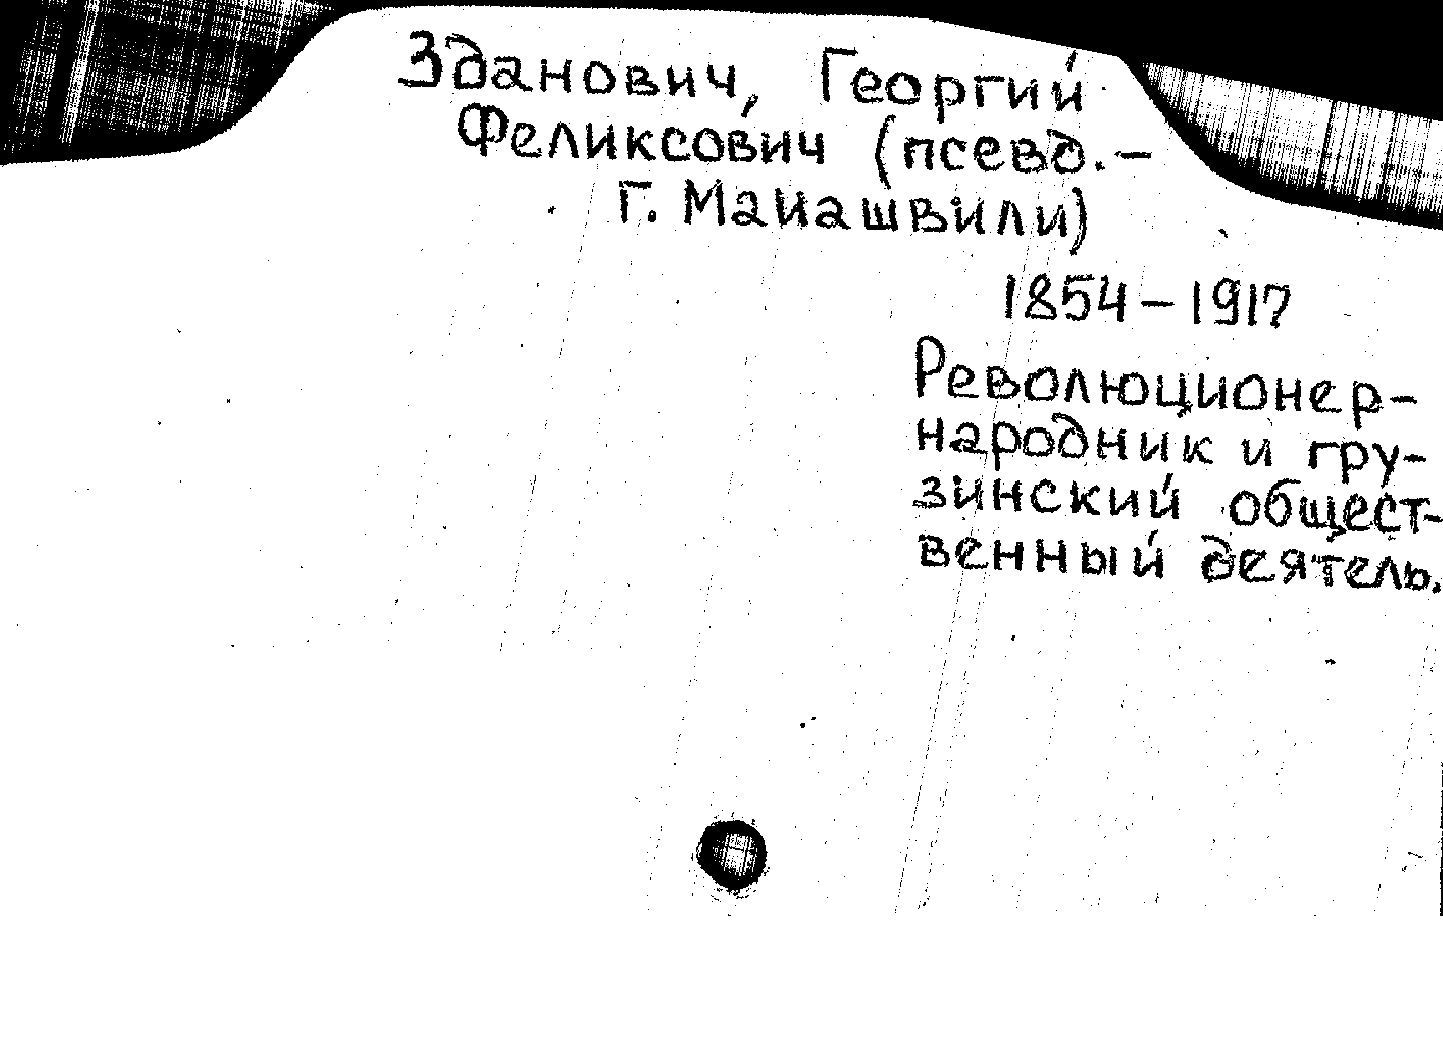 Зданович, Георгий
Феликсович (псевд. –
Г. Маиашвили)
1854 – 1917
Революционер-
народник и гру-
зинский общест-
венный деятель.